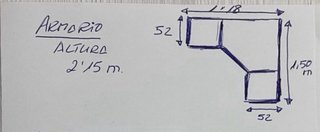 ARMARIO
ALTURA
2'15 m.
1'18
52
1,50 m
52